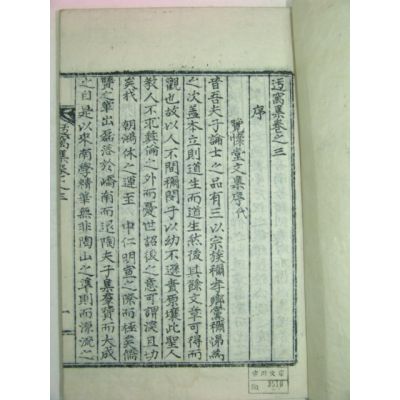 迃窩集卷之三
序
寶㦿堂文集序代
昔吾夫子論士之品有三以宗族稱孝鄕黨稱悌爲
之次盖本立則道生而道生然後其餘文章可得而
觀也故以人不間稱閔子以幼不遜責原壤此聖人
教人不犯難論之外而憂世詔後之意可謂深且切
矣我 朝鴻休之運至 中仁明宣之際而極矣儒
賢之輩出磊落於嶠南而退陶夫子集羣賢而大成
之自是以來南學精華無非陶山之準則而源流之
迃窩集卷之三
一